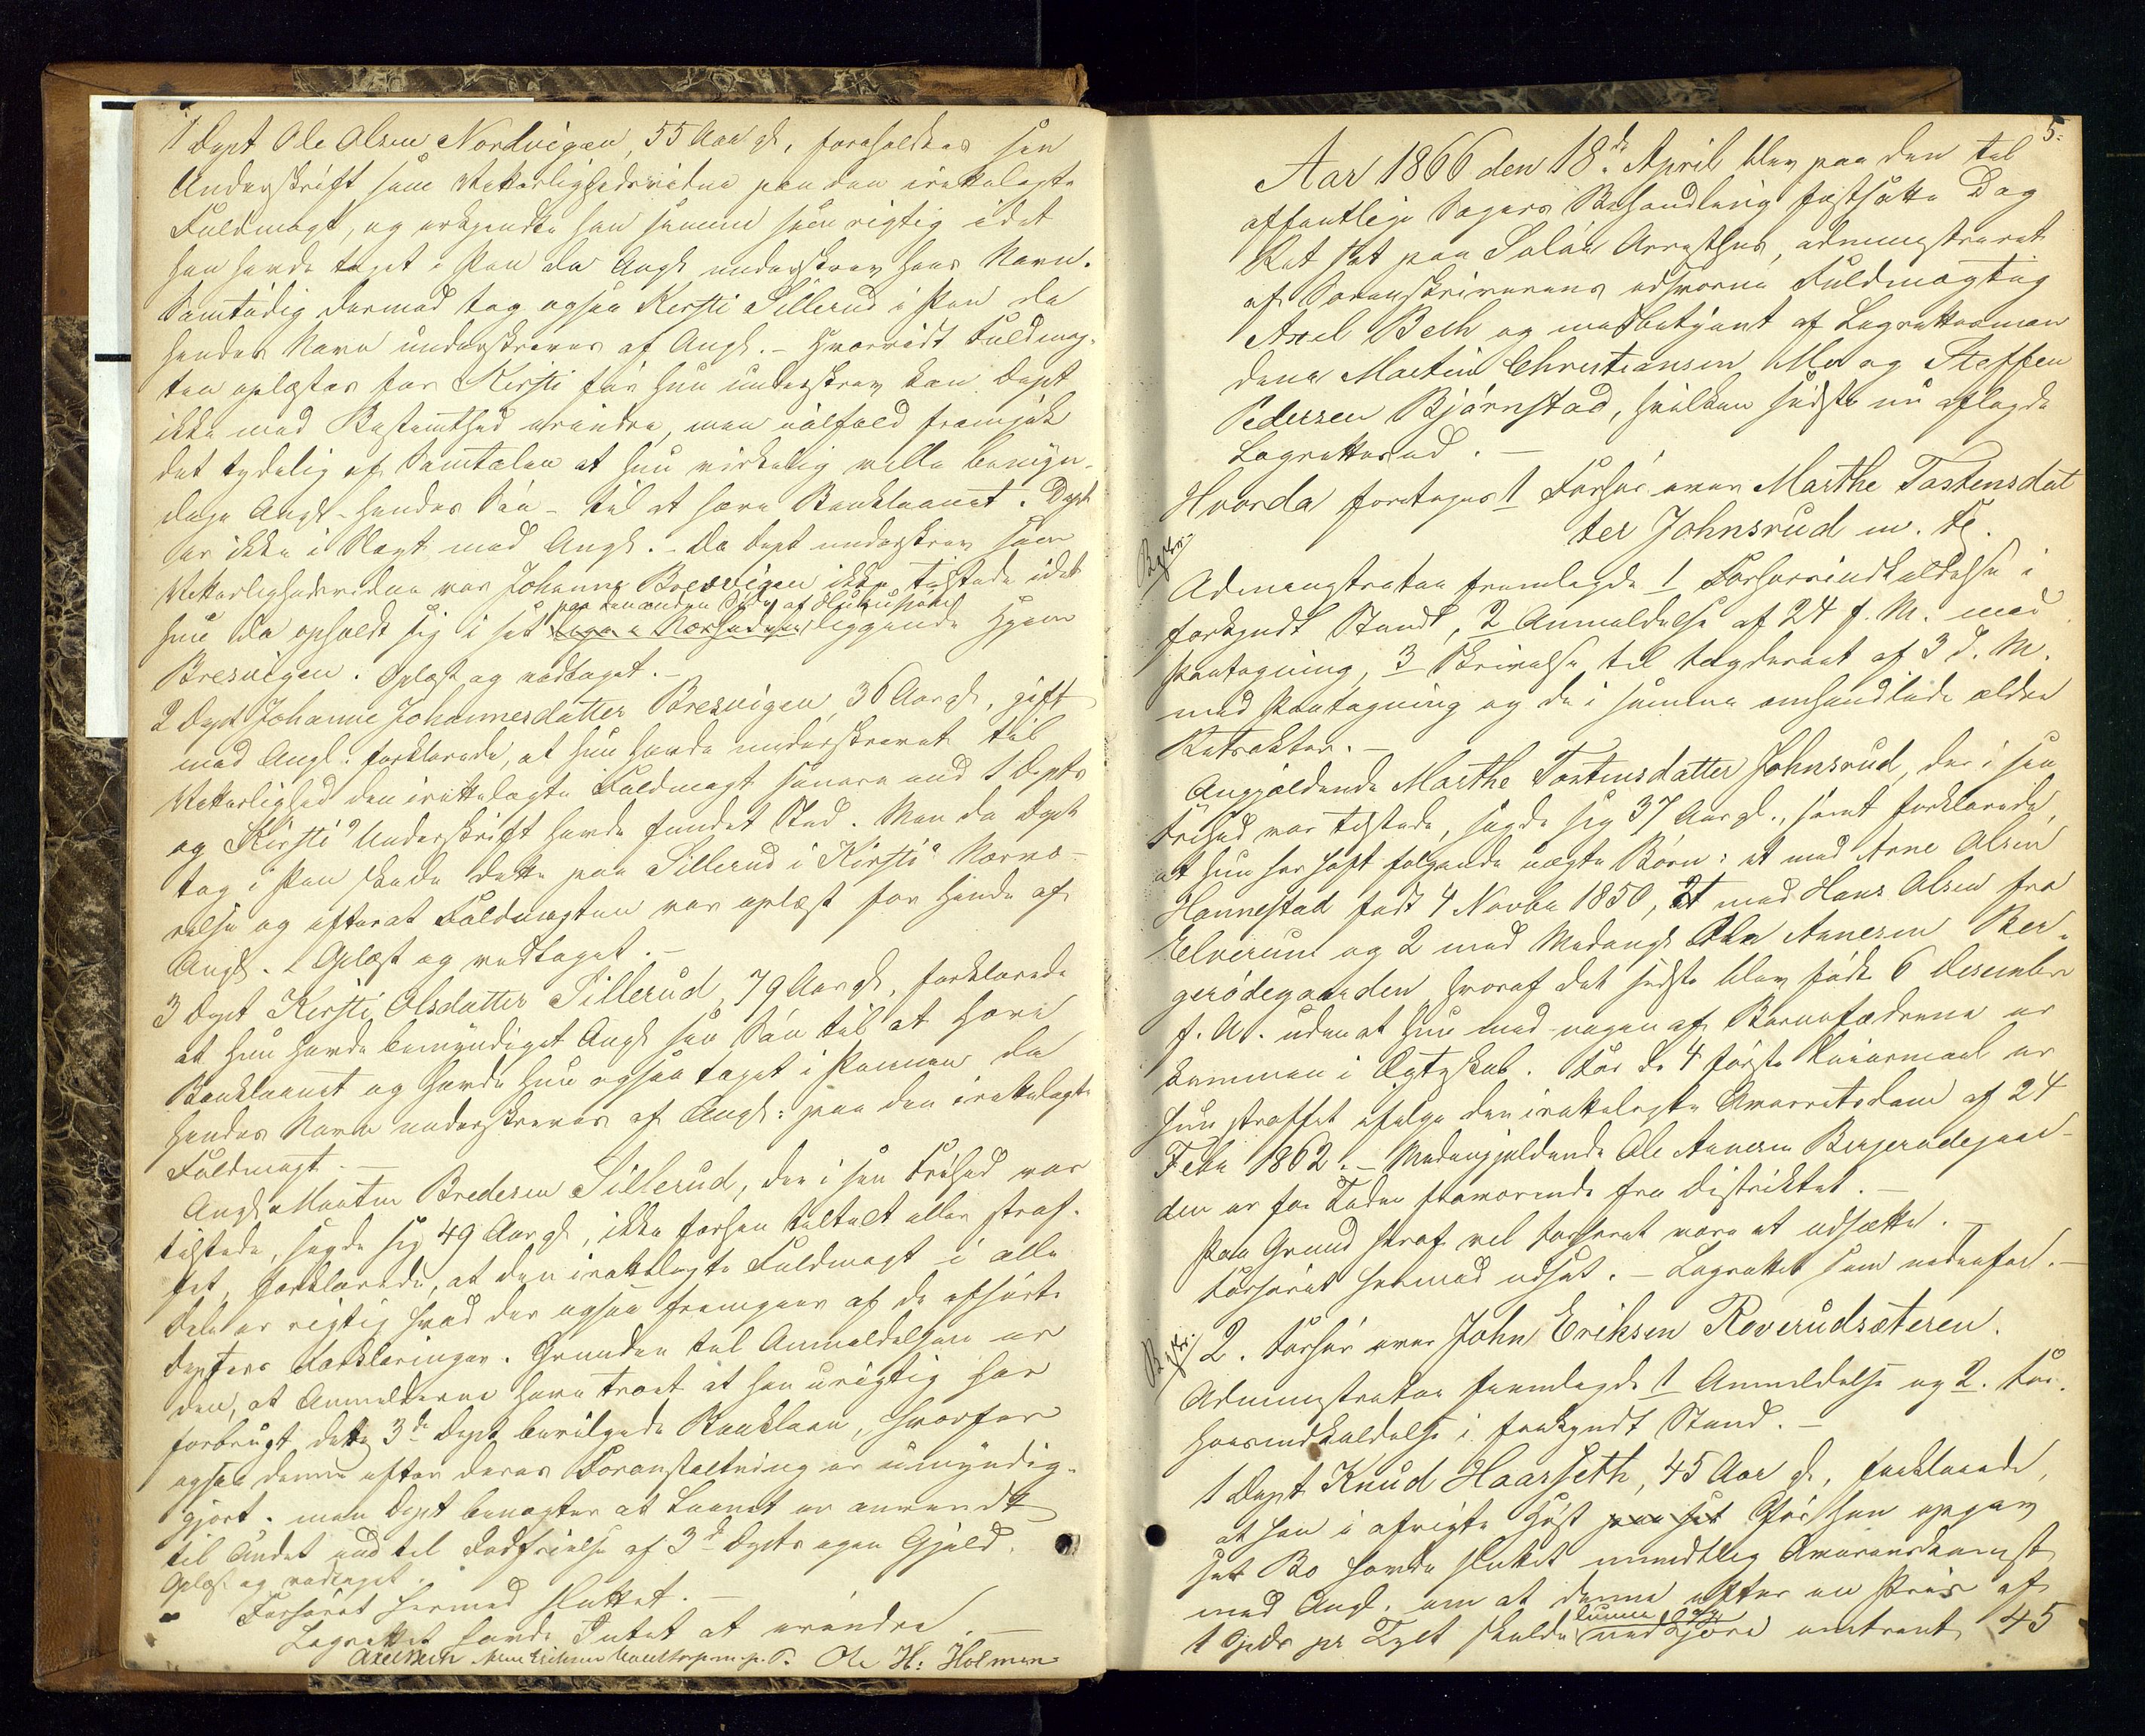 1 Dept Ole Olsen Nordvigen, 55 Aar gl., foreholdtes sin
Underskrift som Vitterlighedsvidne paa den irettelagte
Fuldmagt, og erkjendte han samme som rigtig idet
han havde taget i Pen da Angl underskrev hans Navn.
Samtidig dermed tog ogsaa Kersti Sillerud i Pen da
hendes Navn underskreves af Angl. – Hvorvidt Fuldmag-
ten oplæstes for Kersti før hun underskrev kan Dept
ikke med Bestemthed erindre, men ialfald fremgik
det tydelig af Samtalen at hun virkelig vilde bemyn-
dige Angl – hendes Søn – til at hæve Banklaanet. Dept
er ikke i Slægt med Angl. – Da Dept underskrev som
Vitterlighedsvidne var Johanne Bresvigen ikke tilstede idet
paa den anden Side af
hun da opholdt sig i sit liggende Hjem
Bresvigen. Oplæst og vedtaget. –
2 Dept Johanne Johannesdatter Bresvigen, 36 Aar gl., gift
med Angl: forklarede, at hun havde underskrevet til
Vitterlighed den irettelagte Fuldmagt senere end 1 Depts
og Kirsti's Underskrift havde fundet Sted. Men da Dept
tog i Pen skede dette paa Sillerud i Kirsti's Nærvæ-
relse og efterat Fuldmagten var oplæst for hende af
Angl. – Oplæst og vedtaget. –
3 Dept Kersti Olsdatter Sillerud, 79 Aar gl., forklarede
at hun havde bemyndiget Angl sin Søn til at hæve
Banklaanet og havde hun ogsaa taget i Pennen da
hendes Navn underskreves af Angl: paa den irettelagte
Fuldmagt. –
Angl Martin Bredesen Sillerud, der i sin Frihed var
tilstede, sagde sig 49 Aar gl, ikke forhen tiltalt eller straf-
fet, forklarede, at den irettelagte Fuldmagt i alle
Dele er rigtig hvad der ogsaa fremgaar af de afhørte
Depters Forklaringer. Grunden til Anmeldelsen er
den, at Anmelderne have troet at han urigtig har
forbrugt dette 3de Dept bevilgede Banklaan, hvorfor
ogsaa denne efter deres Foranstaltning er umyndig-
gjort. men Dept benegter at Laanet er anvendt
til Andet end til Indfrielse af 3de Depts egen Gjæld.
Oplæst og vedtaget.
Forhøret hermed sluttet. –
Lagrettet havde Intet at erindre. –
Axel Bech Arne Eriksen m. p. P. Ole H: Holmen
5.
Aar 1866 den 18de April blev paa den til
offentlige Sagers Behandling fastsatte Dag
Ret sat paa Solør Arresthus, administreret
af Sorenskriverens edsvorne Fuldmægtig
Axel Bech og medbetjent af Lagrettesmæn-
dene Martin Christiansen Moe og Steffen
Pedersen Bjørnstad, hvilken sidste nu aflagde
Lagretteed. –
Hvorda foretoges 1 Forhør over Marthe Tostensdat
ter Johnsrud m. Fl.
Administrator fremlagde 1 Forhørsindkaldelse i
forkyndt Stand, 2 Anmeldelse af 24 f. M. med
Paategning, 3 Skrivelse til Fogderiet af 3 d. M.
med Paategning og de i samme omhandlede ældre
Retsakter. –
Angjældende Marthe Tostensdatter Johnsrud, der i sin
Frihed var tilstede, sagde sig 37 Aar gl., samt forklarede,
at hun har havt følgende uægte Børn: et med Arne Olsen
Hannestad født 4 Novbr 1850, 2t med Hans Olsen fra
Elverum og 2 med Medangl Ole Annesen Ber-
gerødegaarden hvoraf det sidste blev født 6 Desember
f. A. uden at hun med nogen af Barnefædrene er
kommen i Ægteskab. For de 4 første Leiermaal er
hun straffet ifølge den irettelagte Overretsdom af 24
Febr 1862. – Medangjældende Ole Annesen Bergerødegaar-
den er for Tiden fraværende fra Distriktet. –
Paa Grund heraf vil Forhøret være at udsætte. –
Forhøret hermed udsat. – Lagrettet som nedenfor. –
2. Forhør over John Eriksen Roverudsæteren.
Administrator fremlagde 1 Anmeldelse og 2. For-
hørsindkaldelse i forkyndt Stand. –
1 Dept Knud Haarseth, 45 Aar gl, forklarede,
at han i afvigte Høst før han opgav
sit Bo havde sluttet mundtlig Overenskomst
med Angl. om at denne efter en Pris af
1 Spds pr Tylt skulde kunne omtrent 45